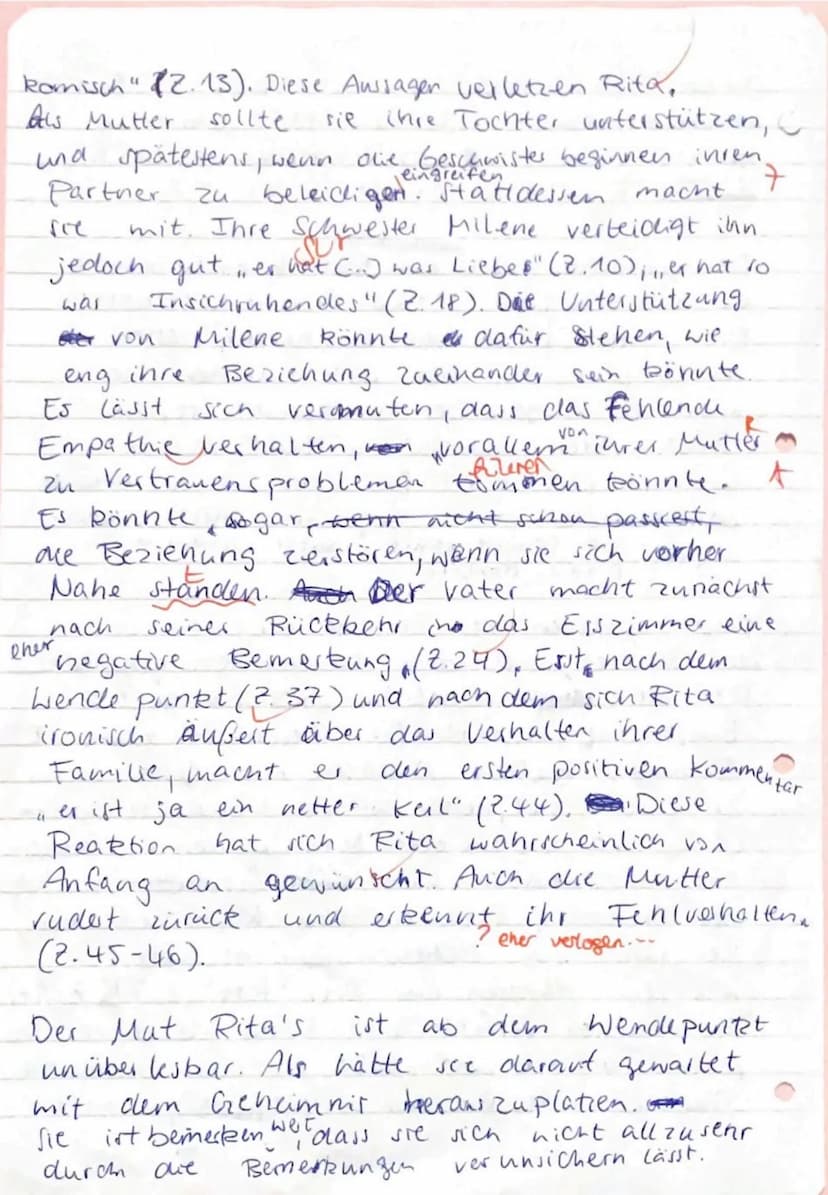 komisch" (Z.13). Diese Aussagen verletzen Rita.
Als Mutter sollte sie ihre Tochter unterstützen,
und spätestens, wenn die Geschwister beginnen ihren
eingreifen
Partner zu beleidigen. Stattdessen macht
sie mit. Ihre Schwester Milene verteidigt ihn
jedoch gut „er hat (...) was Liebes" (Z.10), „er hat so
was Insichruhendes" (Z.18). Die Unterstützung
von Milene könnte dafür stehen, wie
eng ihre Beziehung zueinander sein könnte.
Es lässt sich vermuten, dass das Fehlende
Empathie verhalten, vorallem von ihrer Mutter
R
führen
zu Vertrauensproblemen kommen könnte.
A
Es könnte sogar, wenn nicht schon passiert,
die Beziehung zerstören, wenn sie sich vorher
t
Nahe standen. Auch Der Vater macht zunächst
nach seiner Rückkehr in das Esszimmer eine
eher
negative Bemerkung (Z.24). Erst nach dem
Wende punkt (Z. 37) und nach dem sich Rita
ironisch äußert über das Verhalten ihrer
Familie, macht er den ersten positiven Kommentar
„er ist ja ein netter Kerl" (Z.44). Diese
Reaktion hat sich Rita wahrscheinlich von
Anfang an gewünscht. Auch die Mutter
rudert zurück und erkennt ihr Fehlverhalten.
? eher verlogen...
(Z.45-46).
Der Mut Rita's ist ab dem Wendepunkt
unüber lesbar. Als hätte sie darauf gewartet
mit dem Geheimnis herauszuplatzen.
Sie ist bemerkenswert, dass sie sich nicht allzusehr
durch die Bemerkungen verunsichern lässt.